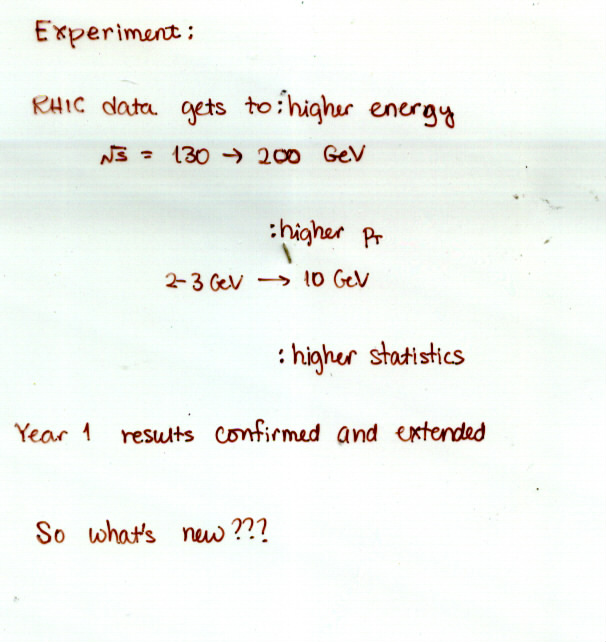 Experiment:
RHIC data gets to: higher energy
√s = 130 → 200 GeV
: higher PT
2-3 GeV → 10 GeV
: higher statistics
Year 1 results confirmed and extended
So what's new???